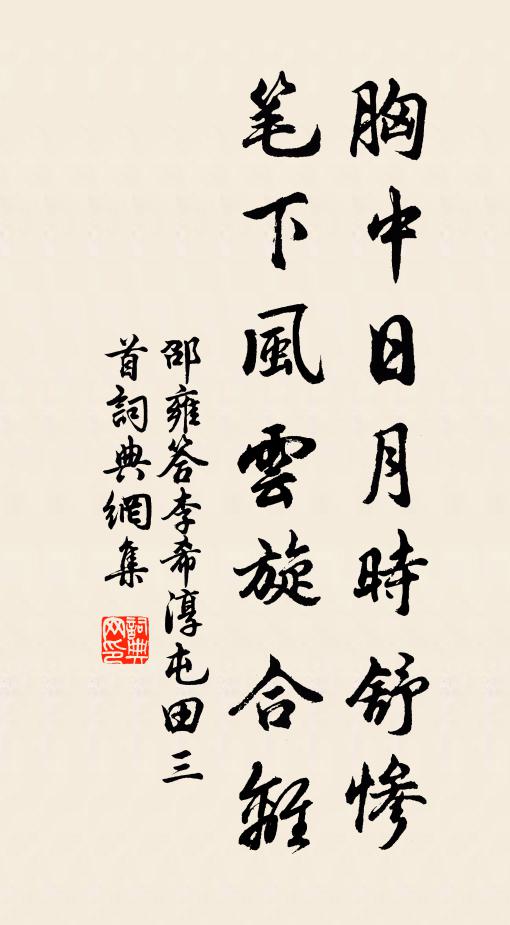 胸中日月時舒慘
笔下風雲旋合離
邵雍答李希淳屯田三
首詞典網集
詞典网印